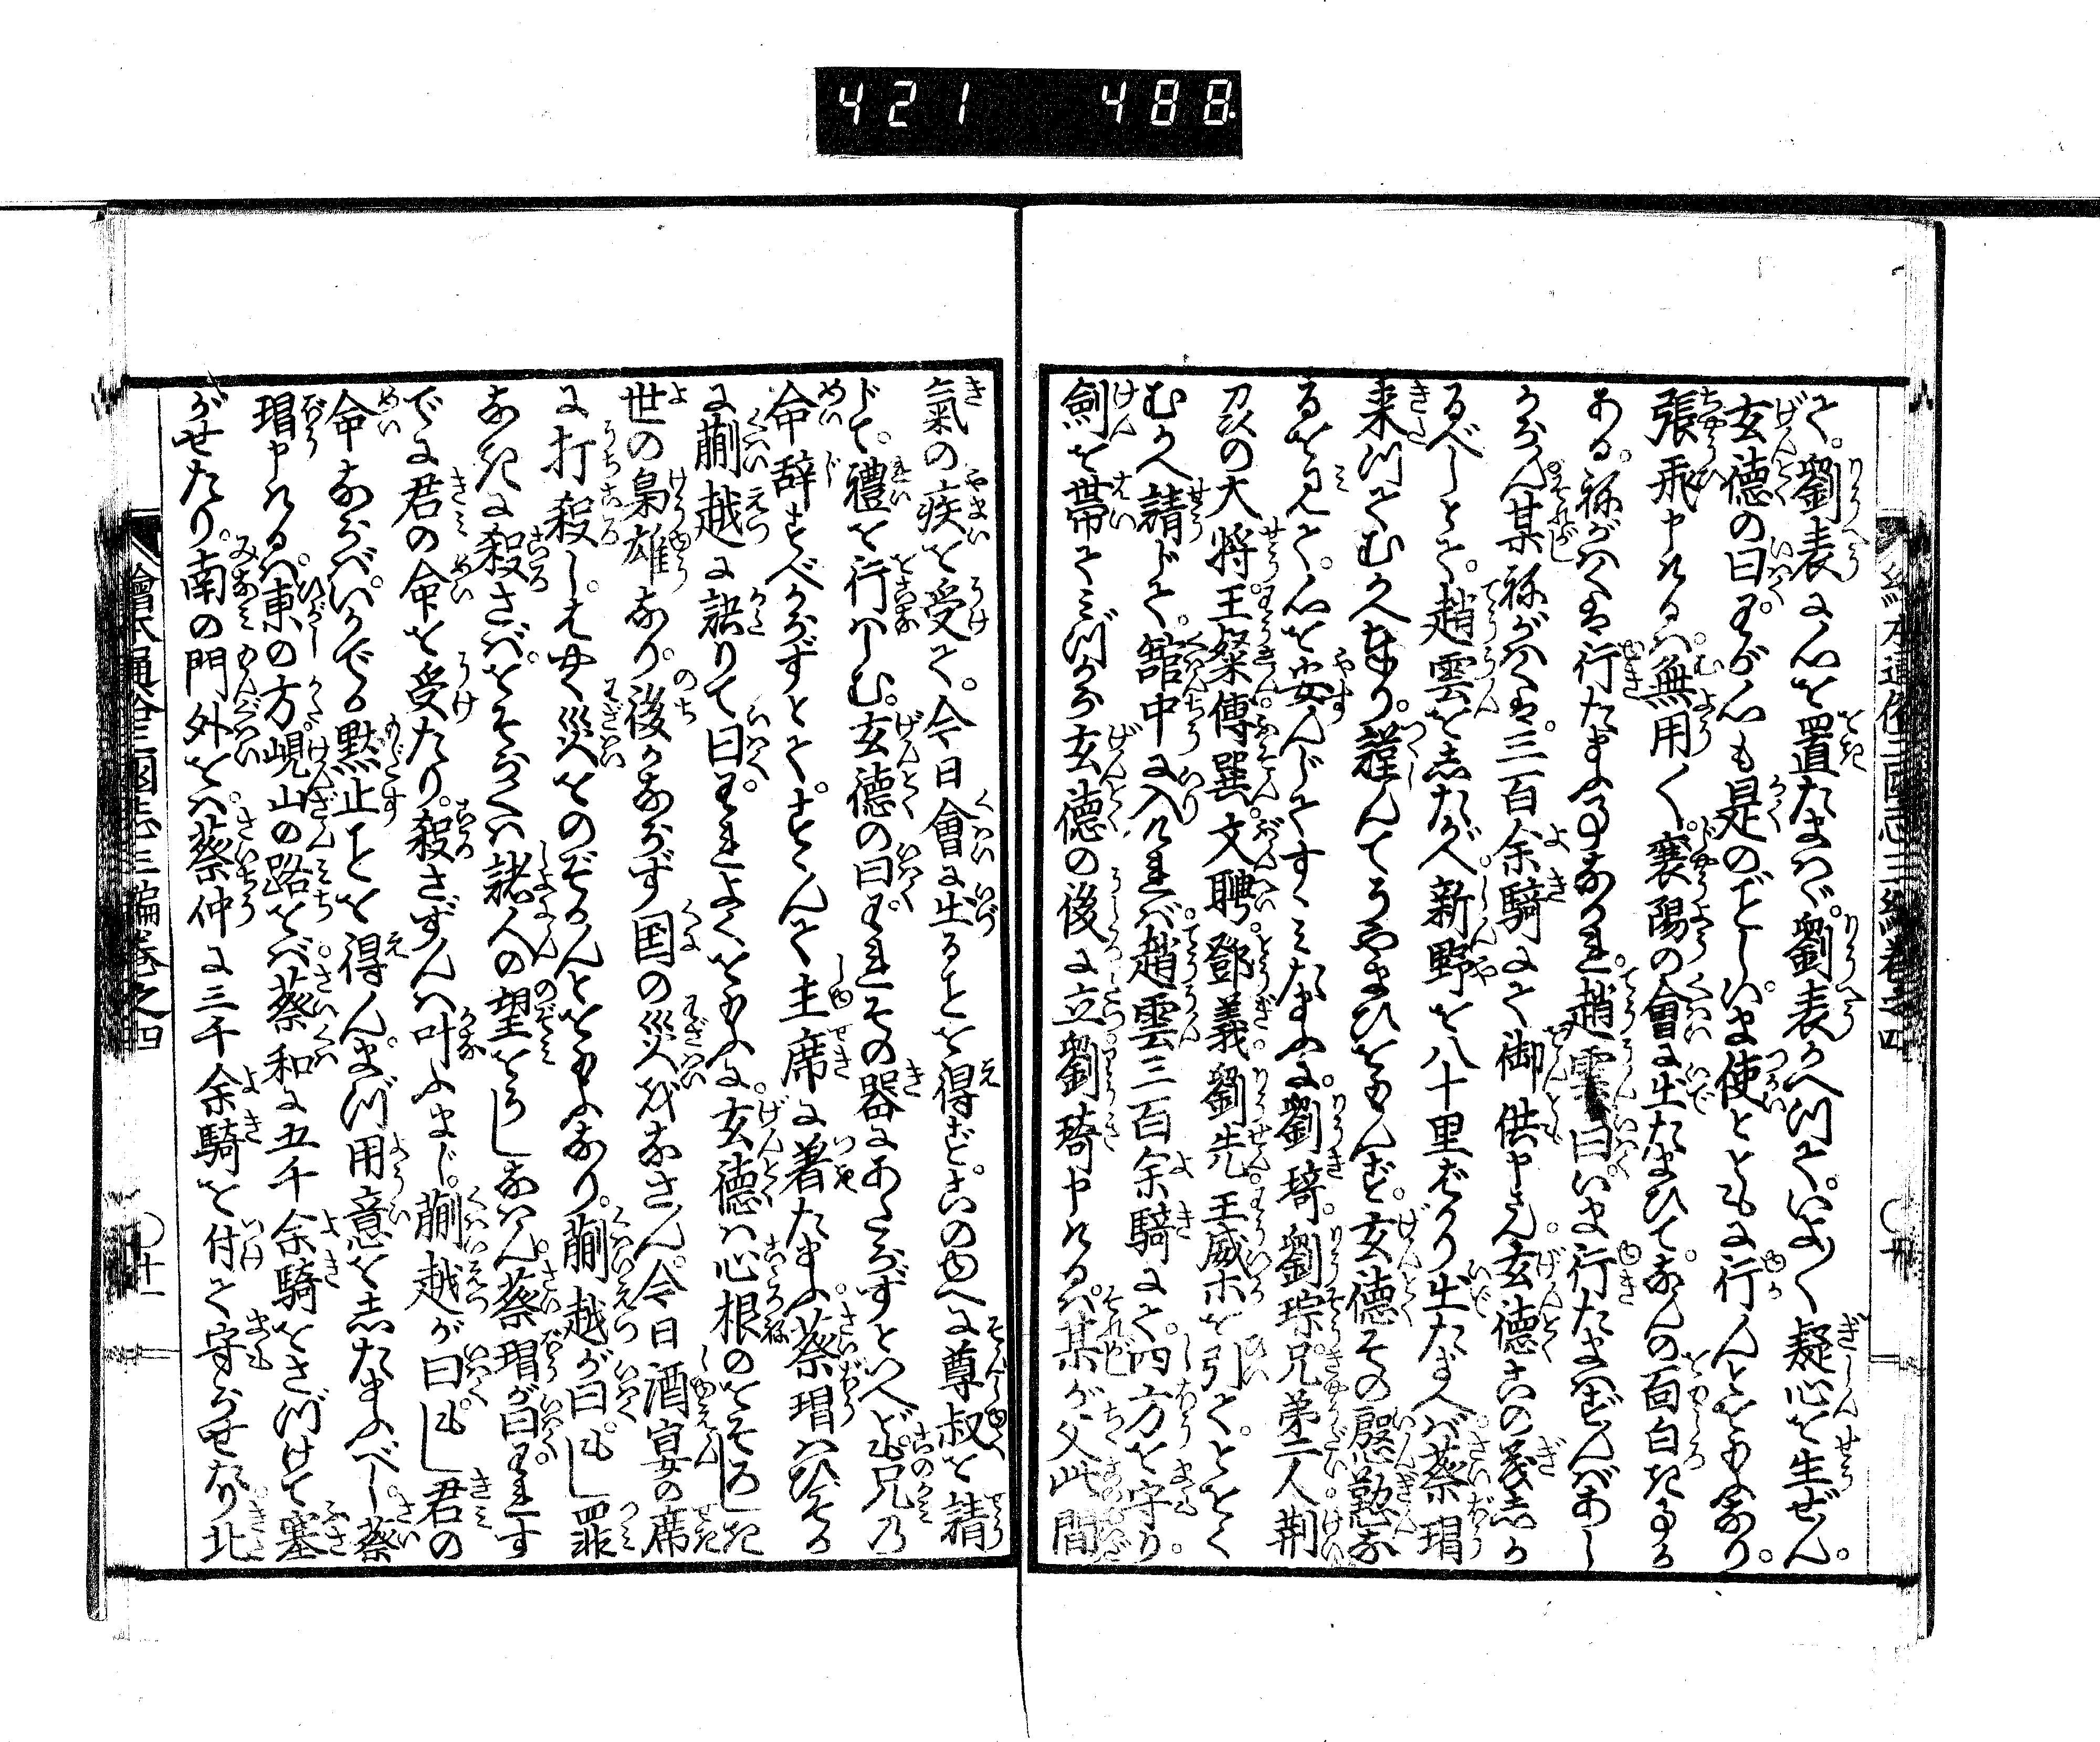 421 488
て。劉表に心を置たまはゞ。劉表かへつて。いよ〱疑心を生ぜん。
玄徳の曰。わが心も是のごとし。いま使とともに行んとおもふなり。
張飛申けるは。無用く。襄陽の會に出たまひて。なんの面白きことか
ある。祢がはくは行たまふ事なかれ。趙雲曰。いま行たまはずんばあし
かなん某祢がはくは。三百余騎にて御供申さん。玄徳この義しか
るべしとて。趙雲をしたがへ新野を八十里ばかり出たまへば蔡瑁
来つてむかへ奉り。謹んてうやまひをなんず。玄徳その慇懃な
るを見て。心を安んじてすゝみたまふに。劉琦。劉琮兄弟二人荆
刕の大将。王粲傳巽。文聘。鄧義。劉先。王威ホを引て。ことごとく
むかへ請じて。舘中に入ければ。趙雲三百余騎にて。四方を守り。
劍を帯てみづから玄徳の後に立。劉琦申けるは。某が父此間
氣の疾を受て。今日會に出ることを得ず。このゆへに尊叔を請
じて。禮を行はしむ。玄徳の曰。われその器にあたらずといへども。兄乃
命辞すべからずとて。すゝんで主席に着たまふ。蔡瑁はひそか
に蒯越に訣りて曰。われよくをもふに。玄徳は心根のをそろしき
世の梟雄なり。後かならず国の災をなさん。今日酒宴の席
に打殺し。もや〱災をのぞかんとをもふなり。蒯越が曰。もし罪
なきに殺さば。をそらくは諸人の望をうしなはん。蔡瑁が曰。われす
でに君の命を受たり。殺さずんば叶ふまじ。蒯越が曰。もし君の
命ならば。いかでか黙止ことを得ん。まづ用意をしたまふべし。蔡
瑁申けるは。東の方。峴山の路をば。蔡和に五千余騎をさづけて塞
がせたり。南の門外をば。蔡仲に三千余騎を付て守らせたり。北
繪本通俗三國志三編卷之四 〇廿一